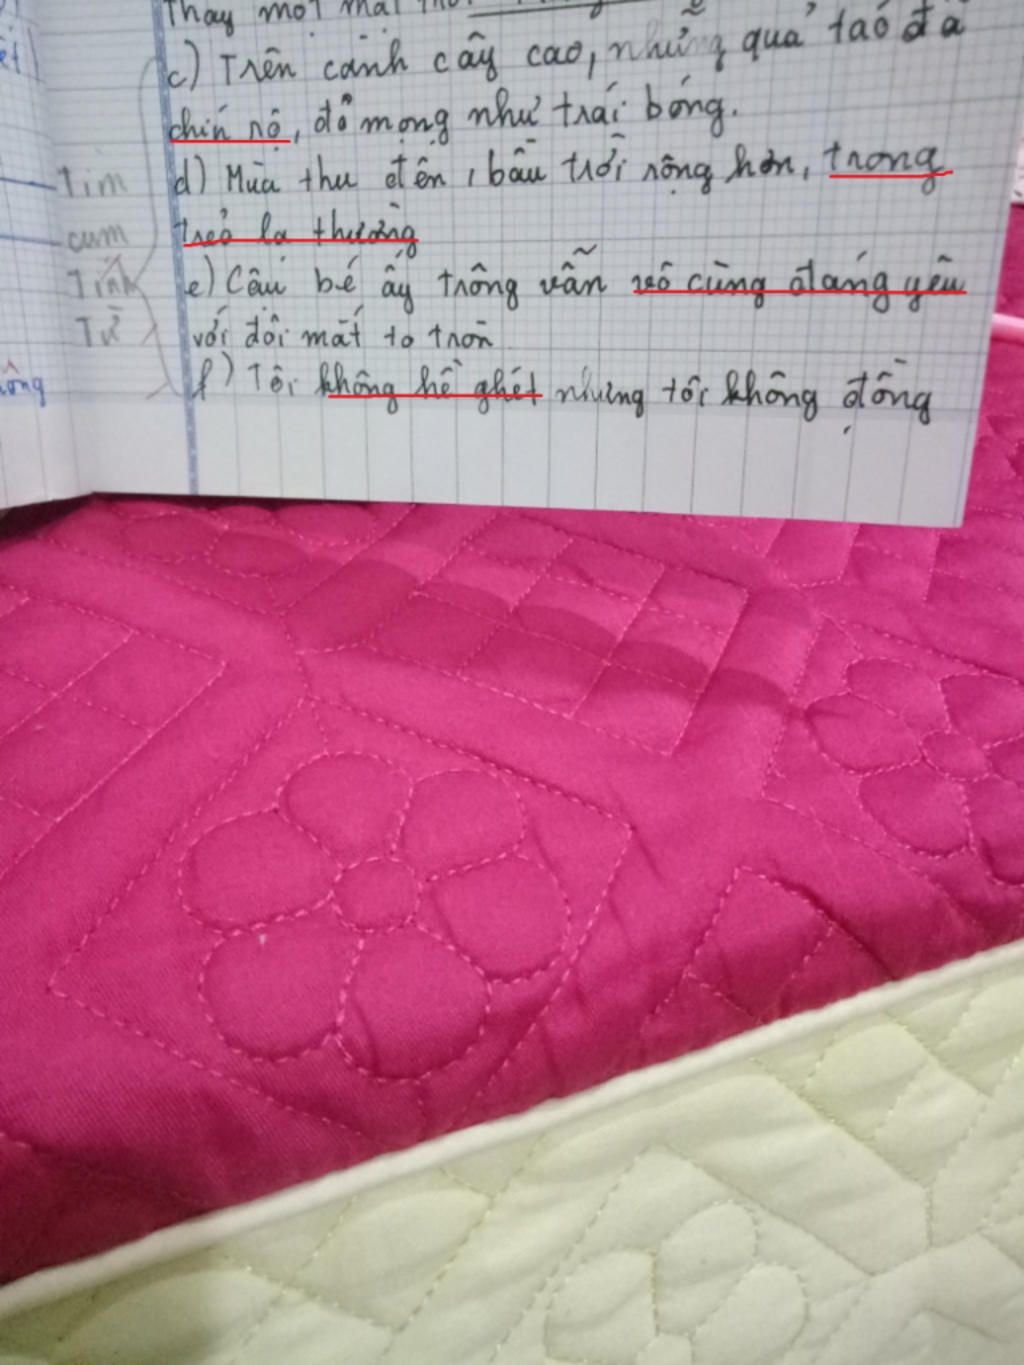 Thay một mái
c) Trên cành cây cao, những quả táo đã
chín rộ, đỏ mọng như trái bóng.
Tìm d) Mùa thu đến, bầu trời rộng hơn, trong
cụm trẻo lạ thường
Tính e) Cậu bé ấy trông vẫn vô cùng đáng yêu
Từ với đôi mắt to tròn
f) Tôi không hề ghét nhưng tôi không đồng